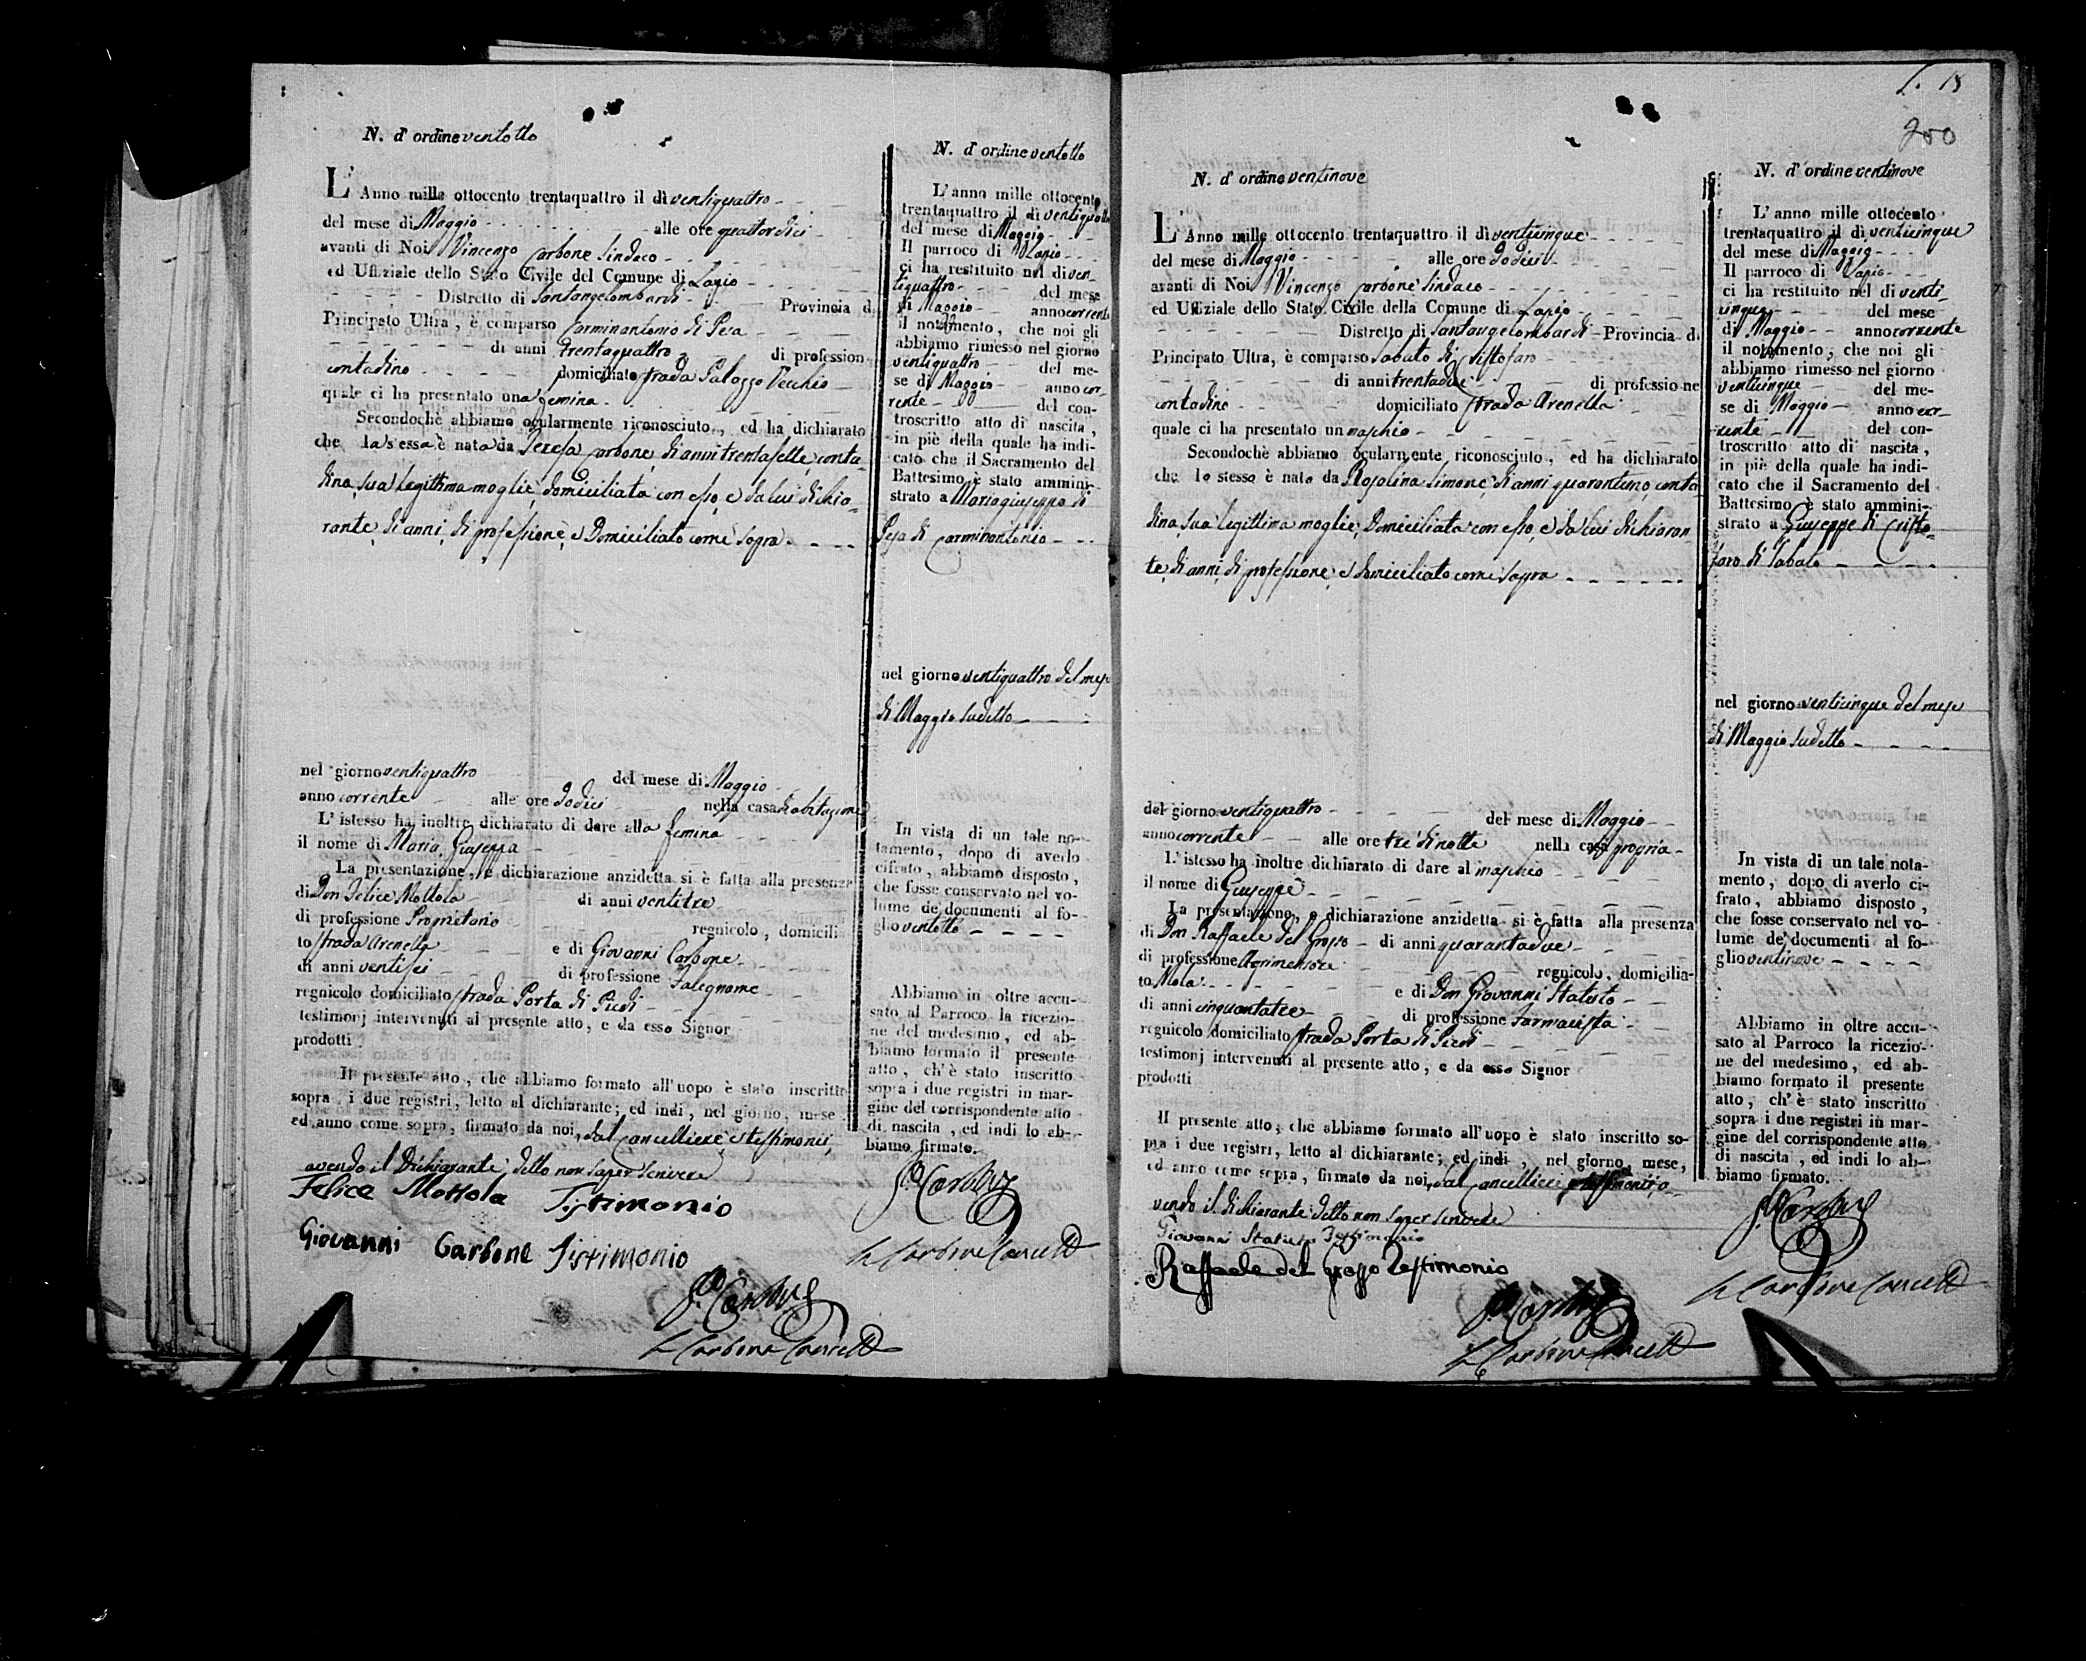 N. d'ordine ventotto
L'Anno mille ottocento trentaquattro il dì ventiquattro
del mese di Maggio alle ore quattordici
avanti di Noi Vincenzo Carbone Sindaco
ed Uffiziale dello Stato Civile del Comune di Lapio
Distretto di Santangelombardi Provincia di
Principato Ultra, è comparso Carminantonio di Pesa
di anni trentaquattro di profession
contadino domiciliato strada Palazzo Vecchio
quale ci ha presentato una femina
Secondochè abbiamo ocularmente riconosciuto, ed ha dichiarato
che la stessa è nata da Teresa Carbone, di anni trentasette, conta-
dina, sua legittima moglie, domiciliata con esso, e da lui dichia-
rante, di anni, di professione, e Domiciliato come sopra
nel giorno ventiquattro del mese di Maggio
anno corrente alle ore dodici nella casa di abitazione
L'istesso ha inoltre dichiarato di dare alla femina
il nome di Maria Giuseppa
La presentazione, e dichiarazione anzidetta si è fatta alla presenza
di Don Felice Mottola di anni ventitre
di professione Proprietario regnicolo, domicilia
to strada Arenella e di Giovanni Carbone
di anni ventisei di professione Falegname
regnicolo domiciliato strada Porta di Piedi
testimonj intervenuti al presente atto, e da esso Signor
prodotti
Il presente atto, che abbiamo formato all'uopo è stato inscritto
sopra i due registri, letto al dichiarante; ed indi, nel giorno, mese
ed anno come sopra, firmato da noi, dal Cancelliere, e testimonii,
avendo il Dichiarante detto non saper scrivere
Felice Mottola Tistimonio
Giovanni Carbone Tistimonio
S. Carbone
Carbone Cancell
N. d'ordine ventotto
L'anno mille ottocento
trentaquattro il dì ventiquattro
del mese di Maggio
Il parroco di Lapio
ci ha restituito nel dì ven-
tiquattro del mese
di Maggio anno corrente
il notamento, che noi gli
abbiamo rimesso nel giorno
ventiquattro del me-
se di Maggio anno cor-
rente del con-
troscritto atto di nascita,
in piè della quale ha indi-
cato che il Sacramento del
Battesimo è stato ammini-
strato a Mariagiuseppa di
Pesa di Carminantonio
nel giorno ventiquattro del mese
di Maggio sudetto
In vista di un tale no-
tamento, dopo di averlo
cifrato, abbiamo disposto,
che fosse conservato nel vo-
lume de' documenti al fo-
glio ventotto
Abbiamo in oltre accu-
sato al Parroco la ricezio-
ne del medesimo, ed ab-
biamo formato il presente
atto, ch'è stato inscritto
sopra i due registri in mar-
gine del corrispondente atto
di nascita, ed indi lo ab-
biamo firmato.
S. Carbone
Carbone Cancell
200
N. d'ordine ventinove
L'Anno mille ottocento trentaquattro il dì venticinque
del mese di Maggio alle ore dodici
avanti di Noi Vincenzo Carbone Sindaco
ed Uffiziale dello Stato Civile della Comune di Lapio
Distretto di Santangelombardi Provincia di
Principato Ultra, è comparso Sabato di Cristofaro
di anni trentadue di professione
contadino domiciliato strada Arenella
quale ci ha presentato un maschio
Secondochè abbiamo ocularmente riconosciuto, ed ha dichiarato
che lo stesso è nato da Rosolina Simone, di anni quarantuno, conta
dina, sua legittima moglie, Domiciliata con esso, e da lui dichiaran
te, di anni, di professione, e domiciliato come sopra
del giorno ventiquattro del mese di Maggio
anno corrente alle ore tre di notte nella casa propria
L'istesso ha inoltre dichiarato di dare al maschio
il nome di Giuseppe
La presentazione, e dichiarazione anzidetta si è fatta alla presenza
di Don Raffaele del Grosso di anni quarantadue
di professione Agrimensore regnicolo, domicilia-
to Mola e di Don Giovanni Statuto
di anni cinquantatre di professione Farmacista
regnicolo domiciliato strada Porta di Piedi
testimonj intervenuti al presente atto, e da esso Signor
prodotti
Il presente atto, che abbiamo formato all'uopo è stato inscritto so-
pra i due registri, letto al dichiarante; ed indi, nel giorno, mese,
ed anno come sopra, firmato da noi, dal Cancelliere, e testimonii, a-
vendo il dichiarante detto non saper scrivere
Giovanni Statuto Testimonio
Raffaele del Grosso Testimonio
S. Carbone
Carbone Cancell
N. d'ordine ventinove
L'anno mille ottocento
trentaquattro il dì venticinque
del mese di Maggio
Il parroco di Lapio
ci ha restituito nel dì venti-
cinque del mese
di Maggio anno corrente
il notamento, che noi gli
abbiamo rimesso nel giorno
venticinque del me-
se di Maggio anno cor-
rente del con-
troscritto atto di nascita,
in piè della quale ha indi-
cato che il Sacramento del
Battesimo è stato ammini-
strato a Giuseppe di Cristo-
faro di Sabato
nel giorno venticinque del mese
di Maggio sudetto
In vista di un tale nota-
mento, dopo di averlo ci-
frato, abbiamo disposto,
che fosse conservato nel vo-
lume de' documenti al fo-
glio ventinove
Abbiamo in oltre accu-
sato al Parroco la ricezio-
ne del medesimo, ed ab-
biamo formato il presente
atto, ch'è stato inscritto
sopra i due registri in mar-
gine del corrispondente atto
di nascita, ed indi lo ab-
biamo firmato.
S. Carbone
Carbone Cancell